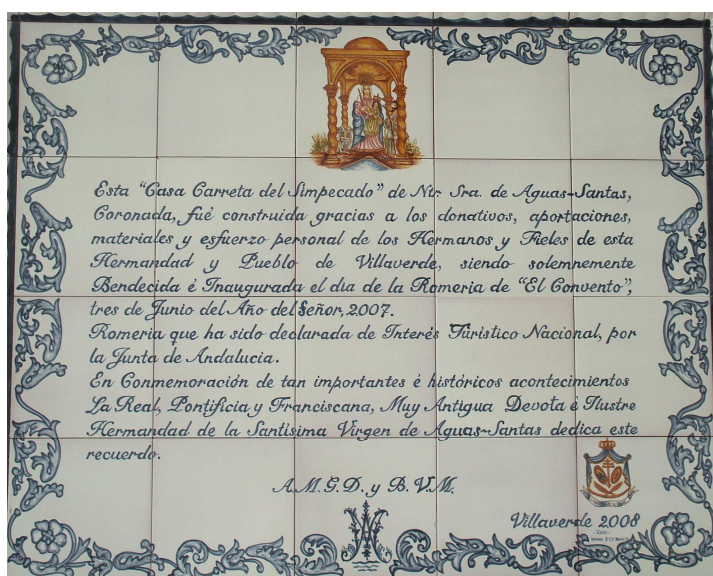 Esta "Casa Carreta del Simpecado" de Ntr. Sra. de Aguas-Santas,
Coronada, fué construida gracias a los donativos, aportaciones,
materiales y esfuerzo personal de los Hermanos y Fieles de esta
Hermandad y Pueblo de Villaverde, siendo solemnemente
Bendecida é Inaugurada el dia de la Romeria de "El Convento",
tres de Junio del Año del Señor, 2007.
Romeria que ha sido declarada de Interés Túristico Nacional, por
la Junta de Andalucia.
En Conmemoración de tan importantes é históricos acontecimientos
La Real, Pontificia y Franciscana, Muy Antigua Devota é Ilustre
Hermandad de la Santisima Virgen de Aguas-Santas dedica este
recuerdo.
A.M.G.D. y B.V.M.
Villaverde 2008